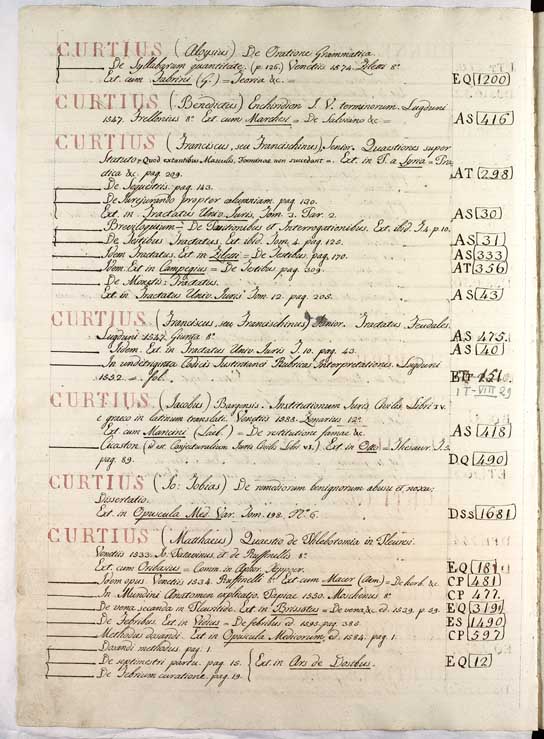 CURTIUS (Aloysius) De Oratione Grammatica.
De Syllabarum quantitate. (p. 126.) Venetiis 1574. Ziletti 8°.
Ext. cum Fabrini (G.) = Teoria &c. = EQ 1200
CURTIUS (Benedictus) Enchiridion I. V. terminorum. Lugduni
1547. Frellonius 8°. Ext. cum Marchesi = De Salviano &c. = AS 416
CURTIUS (Franciscus, seu Francischinus) Senior. Quaestiones super
Statuto = Quod extantibus Masculis, Foeminae non succedant =. Ext. in P. a Lyra = Pra-
ctica &c. pag. 209. AT 298
De Sequestris. pag. 143.
De Jurejurando propter calumniam. pag. 130.
Ext. in Tractatus Univ. Juris, Tom. 3. Par. 2. AS 30
Breviloquium = De Positionibus et Interrogationibus. Ext. ibid. T. 4. p. 10.
De Testibus Tractatus. Ext. ibid. Tom. 4. pag. 120. AS 31
Idem Tractatus. Ext. in Ziletti = De Testibus, pag. 170. AS 333
Idem. Ext. in Campegius = De Testibus pag. 309. AT 356
De Monetis: Tractatus.
Ext. in Tractatus Univ. Juris Tom. 12. pag. 205. AS 43
CURTIUS (Franciscus, seu Francischinus) Junior. Tractatus Feudales
Lugduni 1547. Giunta 8° AS 475.
Iidem. Ext. in Tractatus Univ. Juris T. 10. pag. 43. AS 40
In undetriginta Codicis Justiniani Rubricas Interpretationes. Lugduni
1552. = fol. 151.
1T-VIII 29
CURTIUS (Jacobus) Burgensis. Institutionum Juris Civilis Libri IV.
e graeco in latinum translati. Venetiis 1555. 12°.
Ext. cum Mancini (Lael.) = De restitutione famae &c. AS 418
(id est Conjecturalium Juris Civilis Libri VI.) Ext. in Otto = Thesaur. T. 5.
pag. 89. DQ 490
CURTIUS (Jo: Tobias) De remediorum benignorum abusu et noxa:
Dissertatio.
Ext. in Opuscula Med. Var. Tom. 198. N° 6. DSS 1681
CURTIUS (Matthaeus) Quaestio de Phlebotomia in Pleuresi.
Venetiis 1533. Jo. Patavinus, et de Ruffinellis 8°.
Ext. cum Oribasius = Comm. in Aphor. Hippocr. EQ 181
Idem opus. Venetiis 1534. Ruffinelli 8°. Ext. cum Macer (Aem.) = De herb. &c. CP 481
In Mundini Anatomen explicatio. Papiae 1550. Moschenus 8°. CP 477
De vena secanda in Pleuritide. Ext. in Brissotus = De vena, &c. ed. 1539. p. 59. EQ 319
De Febribus. Ext. in Vidius = De febribus ed. 1595. pag. 380. ES 1490
Methodus dosandi. Ext. in Opuscula Medicorum, ed. 1584. pag. 1. CP 597
Dosandi methodus. pag. 1
De septimestri partu. pag. 15. Ext. in Ars de Dosibus. EQ 12
De Febrium curatione. pag. 19.